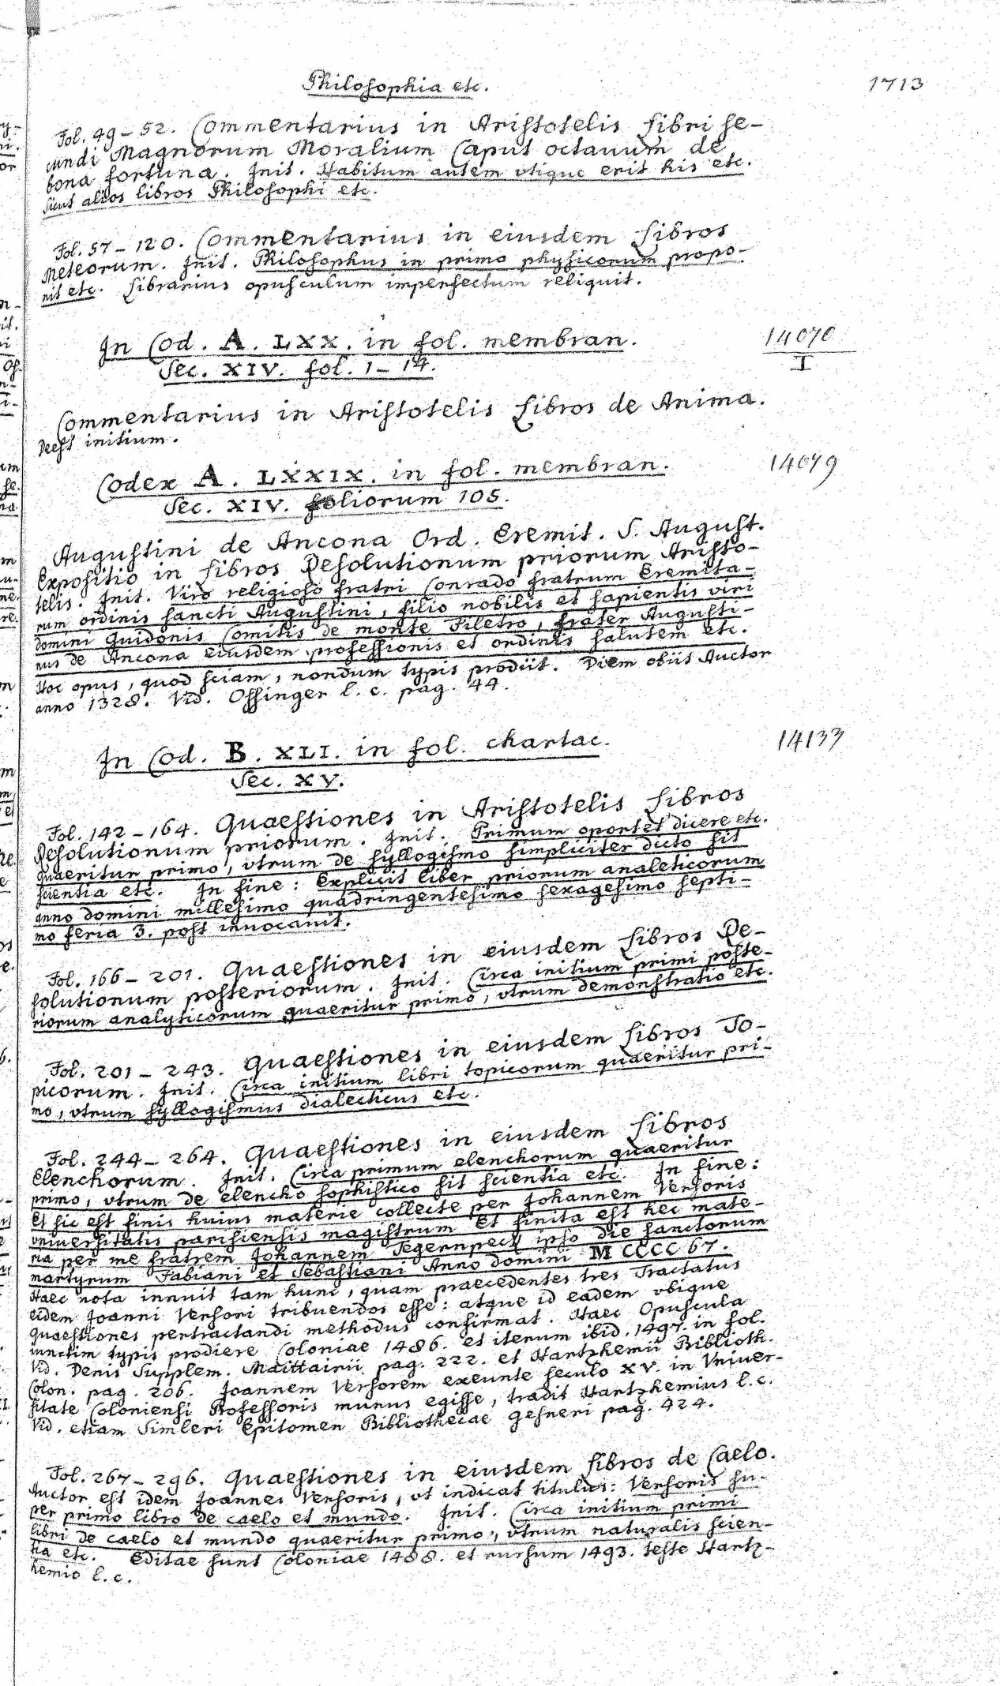 Philosophia etc.
1713
Fol. 49–52. Commentarius in Aristotelis Libri se-
cundi Magnorum Moralium Caput octauum de
bona fortuna. Init. Habitum autem vtique erit his etc.
sicut alios libros Philosophi etc.
Fol. 57–120. Commentarius in eiusdem Libros
Meteorum. Init. Philosophus in primo physicorum propo-
nit etc. Librarius opusculum imperfectum reliquit.
In Cod. A. LXX. in fol. membran.
14070
I
Sec. XIV. fol. 1–14.
Commentarius in Aristotelis Libros de Anima.
Deest initium.
Codex A. LXXIX. in fol. membran.
14079
Sec. XIV. foliorum 105.
Augustini de Ancona Ord. Eremit. S. August.
Expositio in Libros Resolutionum priorum Aristo-
telis. Init. Viro religioso fratri Conrado fratrum Eremita-
rum ordinis sancti Augustini, filio nobilis et sapientis viri
domini Guidonis Comitis de monte Filetro, frater Augusti-
nus de Ancona eiusdem professionis et ordinis salutem etc.
Hoc opus, quod sciam, nondum typis prodiit. Diem obiit Auctor
anno 1328. Vid. Ossinger l. c. pag. 44.
In Cod. B. XLI. in fol. chartac.
14133
Sec. XV.
Fol. 142–164. Quaestiones in Aristotelis Libros
Resolutionum priorum. Init. Primum oportet dicere etc.
Quaeritur primo, vtrum de syllogismo simpliciter dicto sit
scientia etc. In fine: Explicit liber priorum analeticorum
anno domini millesimo quadringentesimo sexagesimo septi-
mo feria 3. post inuocauit.
Fol. 166–201. Quaestiones in eiusdem Libros Re-
solutionum posteriorum. Init. Circa initium primi poste-
riorum analyticorum quaeritur primo, vtrum demonstratio etc.
Fol. 201–243. Quaestiones in eiusdem Libros To-
picorum. Init. Circa initium libri topicorum quaeritur pri-
mo, vtrum syllogismus dialecticus etc.
Fol. 244–264. Quaestiones in eiusdem Libros
Elenchorum. Init. Circa primum elenchorum quaeritur
primo, vtrum de elencho sophistico sit scientia etc. In fine:
Et sic est finis huius materie collecte per Johannem Versoris
vniuersitatis parisiensis magistrum Et finita est hec mate-
ria per me fratrem Johannem Tegernpeck ipso die sanctorum
martyrum Fabiani et Sebastiani Anno domini MCCCC67.
Haec nota innuit tam hunc, quam praecedentes tres Tractatus
eidem Joanni Versori tribuendos esse: atque id eadem vbique
quaestiones pertractandi methodus confirmat. Haec Opuscula
iunctim typis prodiere Coloniae 1486. et iterum ibid. 1497. in fol.
Vid. Denis Supplem. Maittairii pag. 222. et Hartzhemii Biblioth.
Colon. pag. 206. Joannem Versorem exeunte seculo XV. in Vniuer-
sitate Coloniensi Professoris munus egisse, tradit Hartzhemius l. c.
Vid. etiam Simleri Epitomen Bibliothecae Gesneri pag. 424.
Fol. 267–296. Quaestiones in eiusdem Libros de Caelo.
Auctor est idem Joannes Versoris, vt indicat titulus: Versoris su-
per primo libro de caelo et mundo. Init. Circa initium primi
libri de caelo et mundo quaeritur primo, vtrum naturalis scien-
tia etc. Editae sunt Coloniae 1488. et rursum 1493. teste Hartz-
hemio l. c.